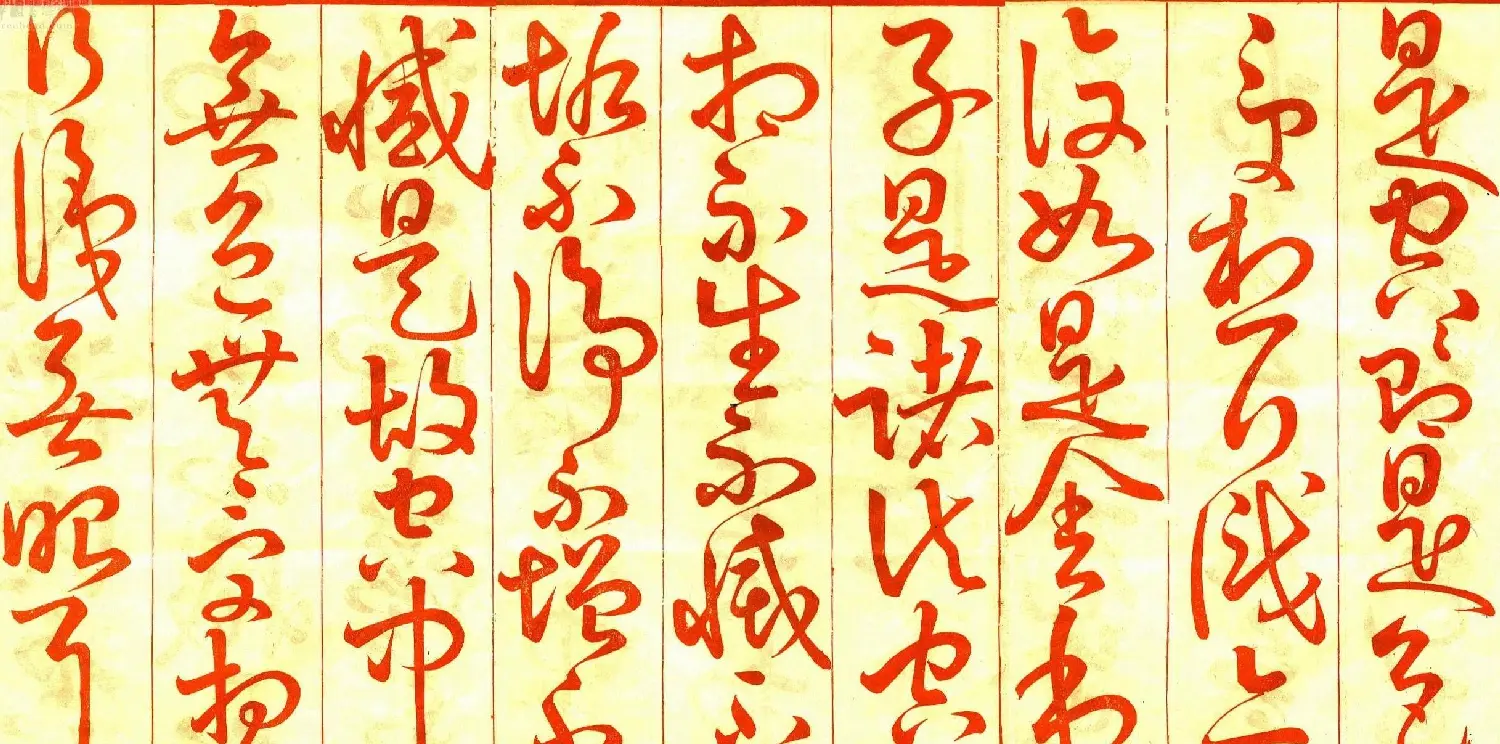 是空々即是色
受想行識亦
復如是舍利
子是諸法空
相不生不滅不
垢不淨不增不
減是故空中
無色無受想
行識無眼耳